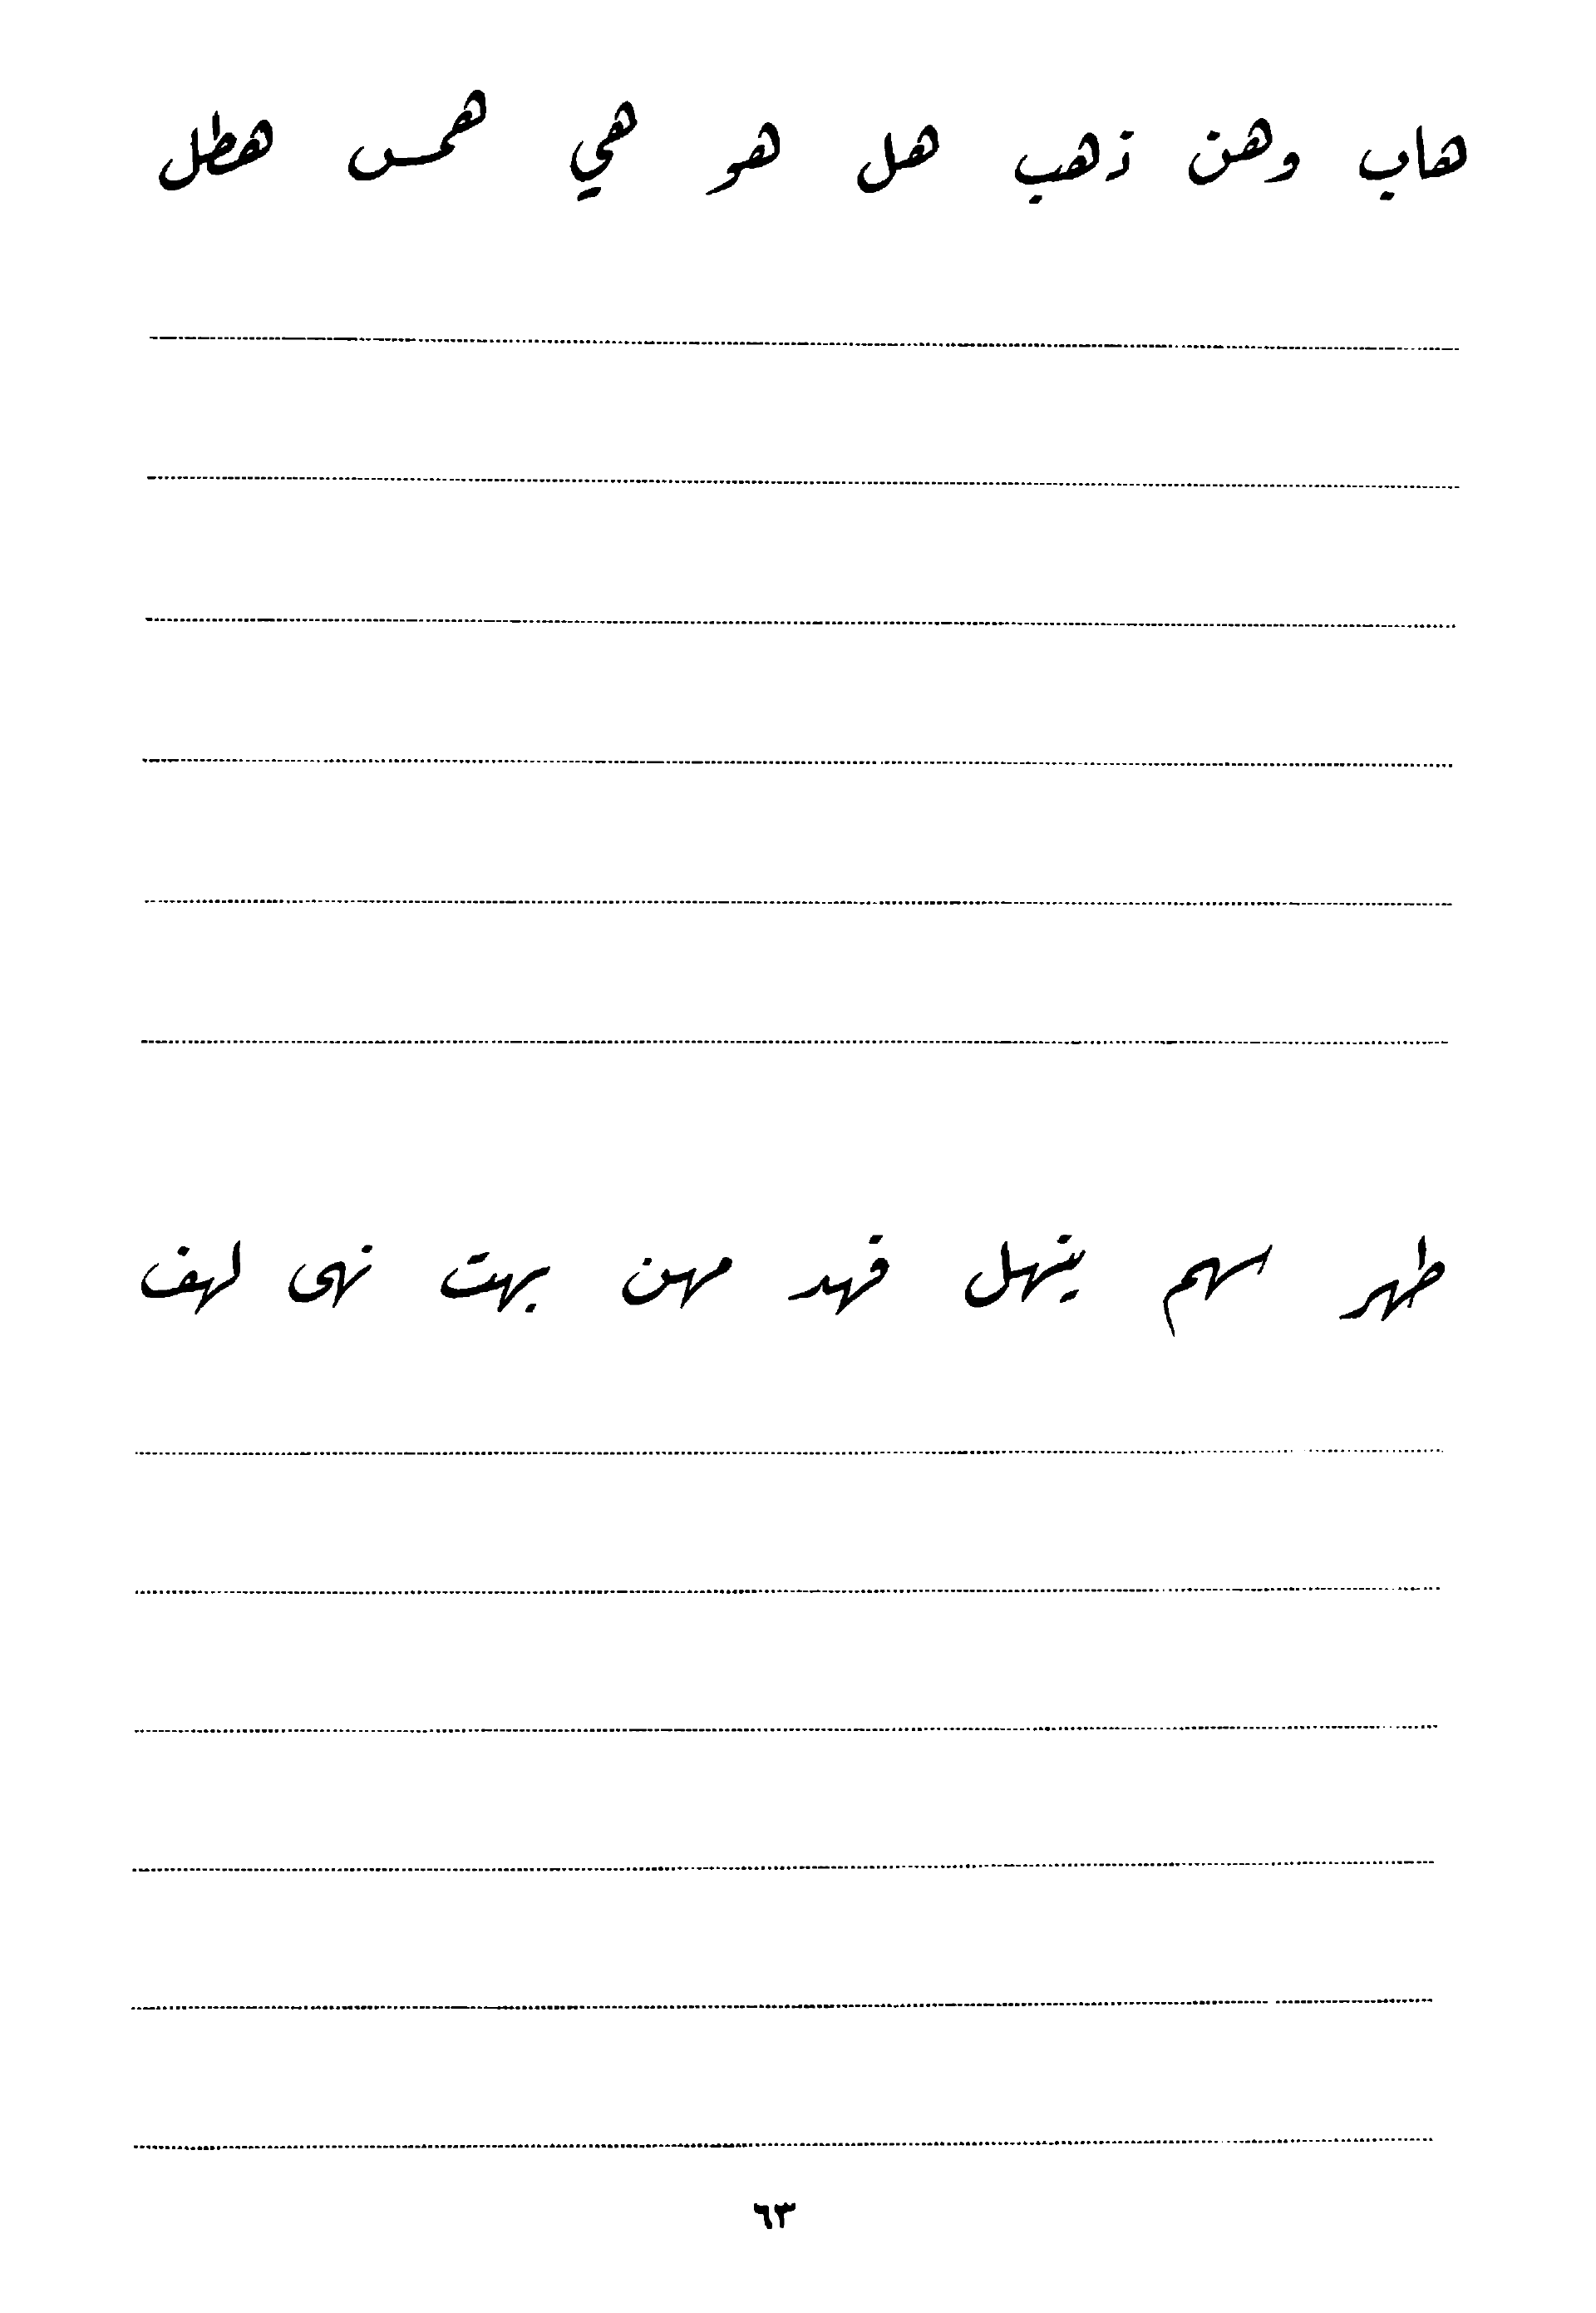 هاب وهن ذهب هل هو هي همس هطل
طهر سهم ينهل فهد مهن بهت نهى لهف
٦٣